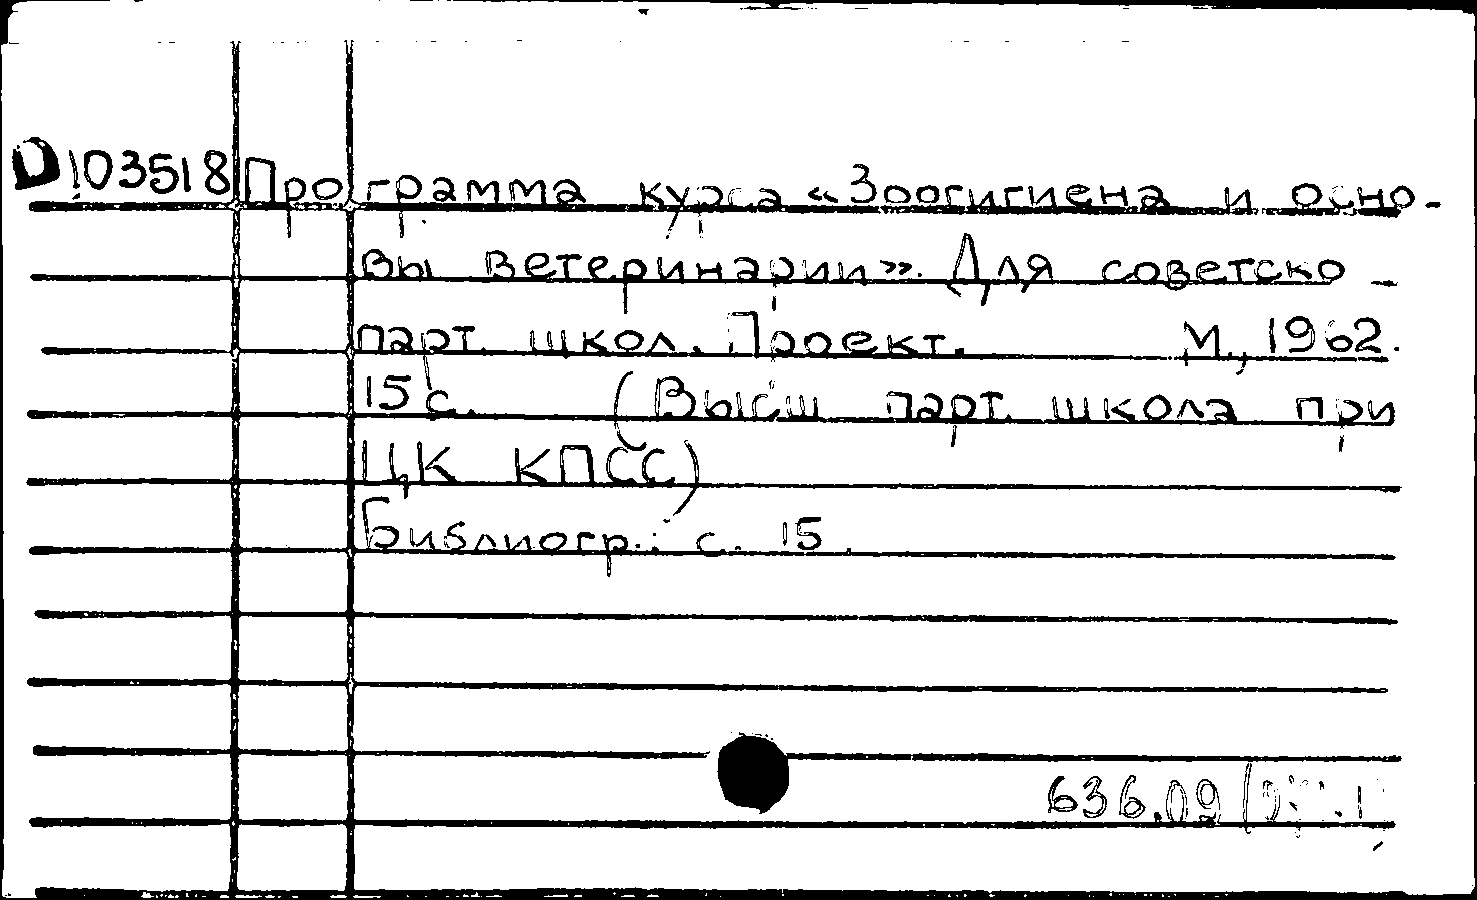 D 103518 Программа курса «Зоогигиена и осно-
вы ветеринарии». Для советско-
парт. школ. Проект. М., 1962.
15 с. (Высш парт. школа при
ЦК КПСС)
Библиогр.: с. 15.
636.09